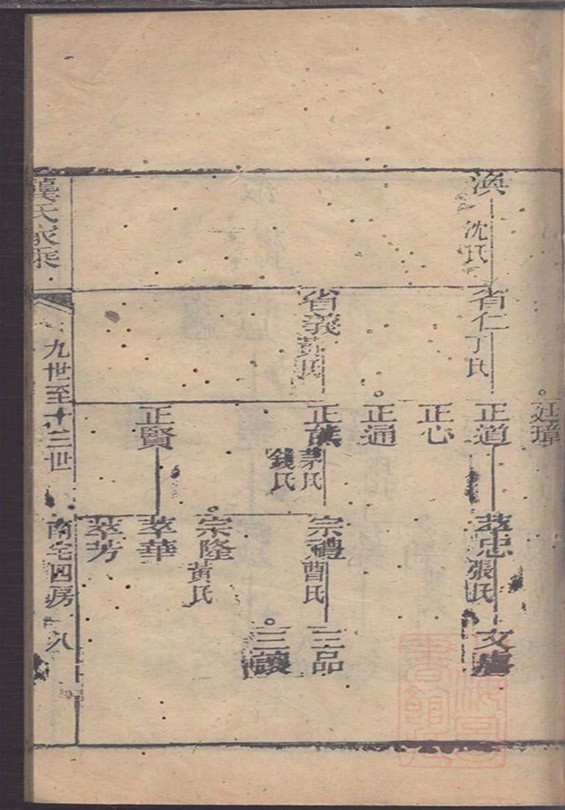 渙 沈氏
省仁 丁氏
省義 黃氏
廷璋
正道
正心
正通
正 茅氏 錢氏
正賢
萃忠 張氏
宗禮 曹氏
宗隆 黃氏
萃華
萃芳
文
三品
三
龔氏家乘
九世至十三世
南宅四房
八